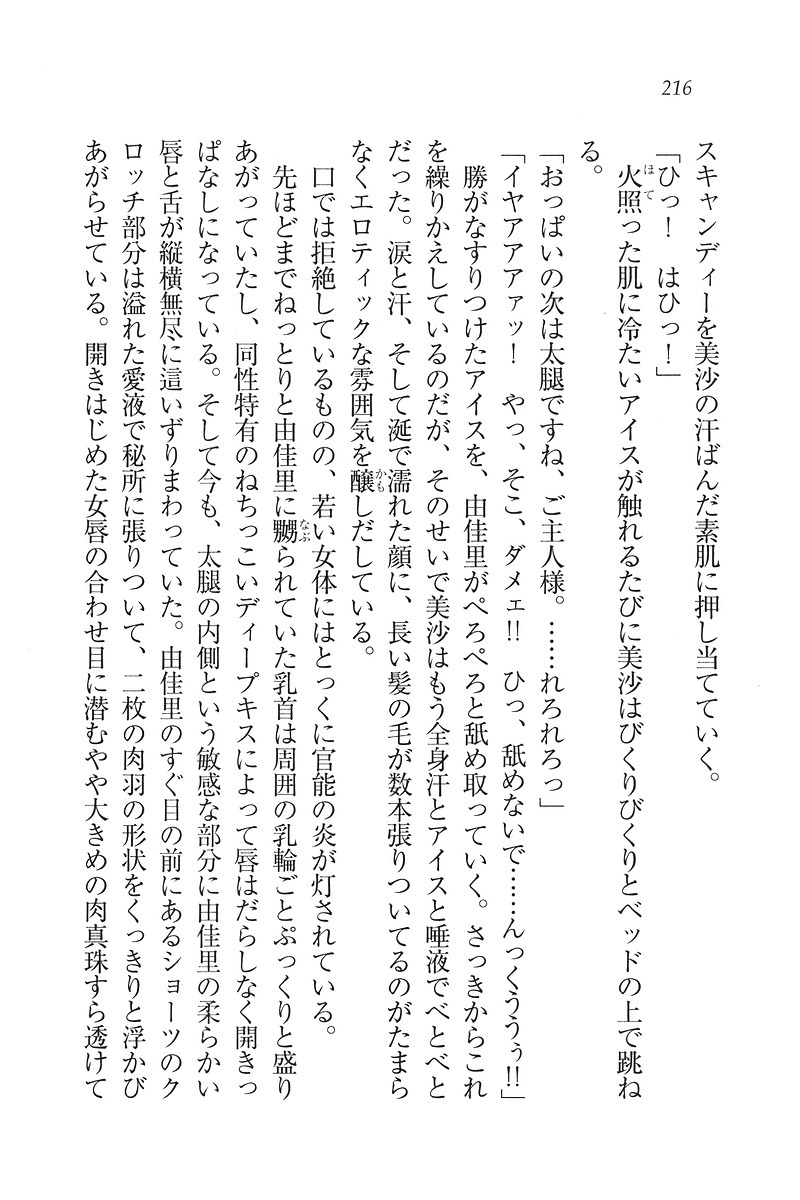 216
スキャンディーを美沙の汗ばんだ素肌に押し当てていく。
「ひっ！　はひっ！」
火照った肌に冷たいアイスが触れるたびに美沙はびくりびくりとベッドの上で跳ね
る。
「おっぱいの次は太腿ですね、ご主人様。……れろれろっ」
「イヤアアアァッ！　やっ、そこ、ダメェ!!　ひっ、舐めないで……んっくううぅ!!」
勝がなすりつけたアイスを、由佳里がぺろぺろと舐め取っていく。さっきからこれ
を繰りかえしているのだが、そのせいで美沙はもう全身汗とアイスと唾液でべとべと
だった。涙と汗、そして涎で濡れた顔に、長い髪の毛が数本張りついてるのがたまら
なくエロティックな雰囲気を醸しだしている。
口では拒絶しているものの、若い女体にはとっくに官能の炎が灯されている。
先ほどまでねっとりと由佳里に嬲られていた乳首は周囲の乳輪ごとぷっくりと盛り
あがっていたし、同性特有のねちっこいディープキスによって唇はだらしなく開きっ
ぱなしになっている。そして今も、太腿の内側という敏感な部分に由佳里の柔らかい
唇と舌が縦横無尽に這いずりまわっていた。由佳里のすぐ目の前にあるショーツのク
ロッチ部分は溢れた愛液で秘所に張りついて、二枚の肉羽の形状をくっきりと浮かび
あがらせている。開きはじめた女唇の合わせ目に潜むやや大きめの肉真珠すら透けて